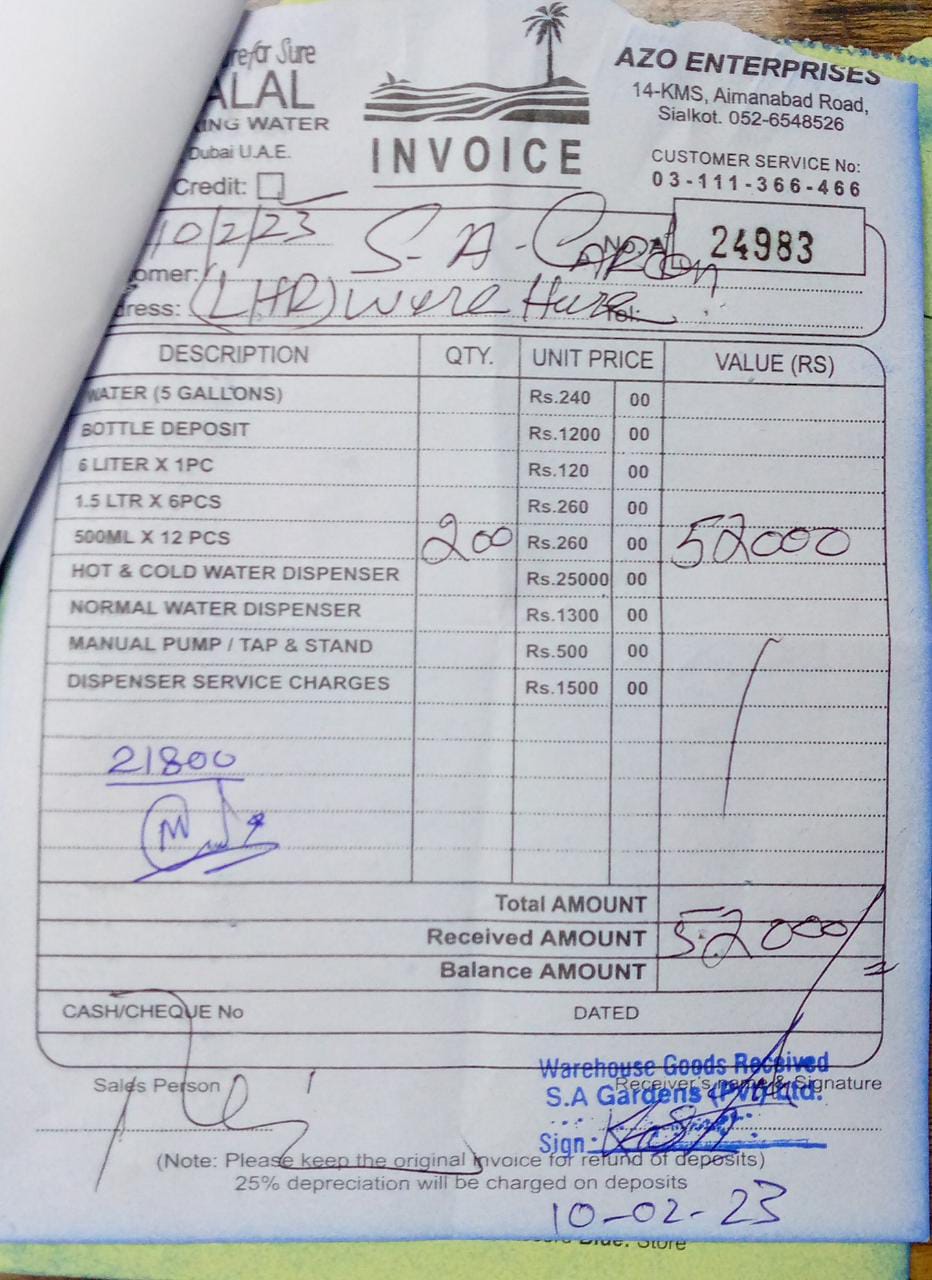 re for Sure
ALAL
ING WATER
Dubai U.A.E.
Credit:
INVOICE
AZO ENTERPRISES
14-KMS, Aimanabad Road,
Sialkot. 052-6548526
CUSTOMER SERVICE No:
03-111-366-466
10/2/23
No. 24983
omer: S-A-
ress: (LHR) were Tel:
DESCRIPTION QTY. UNIT PRICE VALUE (RS)
WATER (5 GALLONS) Rs.240 00
BOTTLE DEPOSIT Rs.1200 00
6 LITER X 1PC Rs.120 00
1.5 LTR X 6PCS Rs.260 00
500ML X 12 PCS 200 Rs.260 00 52000
HOT & COLD WATER DISPENSER Rs.25000 00
NORMAL WATER DISPENSER Rs.1300 00
MANUAL PUMP / TAP & STAND Rs.500 00
DISPENSER SERVICE CHARGES Rs.1500 00
21800
Total AMOUNT
Received AMOUNT 52000/=
Balance AMOUNT
CASH/CHEQUE No DATED
Sales Person Receiver's name & Signature
Warehouse Goods Received
S.A Gardens (Pvt) Ltd.
Sign:
(Note: Please keep the original invoice for refund of deposits)
25% depreciation will be charged on deposits
10-02-23
Store